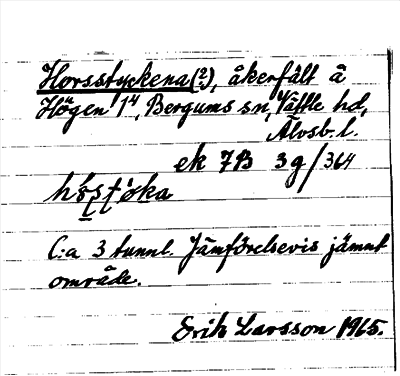 Horsstyckena(?), åkerfält å
Högen 1⁴, Bergums sn, Vättle hd,
Älvsb. l.
ek 7B 3g/364
C:a 3 tunnl. Jämförelsevis jämnt
område.
Erik Larsson 1965.